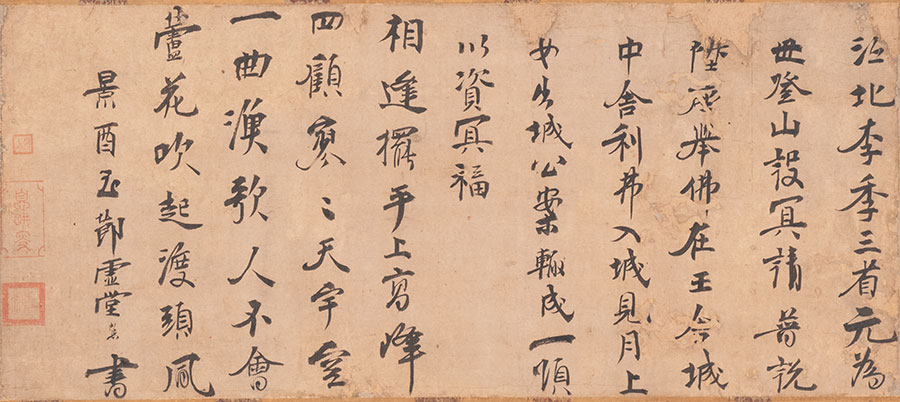 江北李季三省元為
母登山設冥請普説
陞座舉佛在王舎城
中舎利弗入城見月上
女出城公案輙成一頌
以資冥福
相逢擺手上高峰
四顧寥〻天宇空
一曲漁歌人不會
蘆花吹起渡頭風
景酉至節虚堂 書